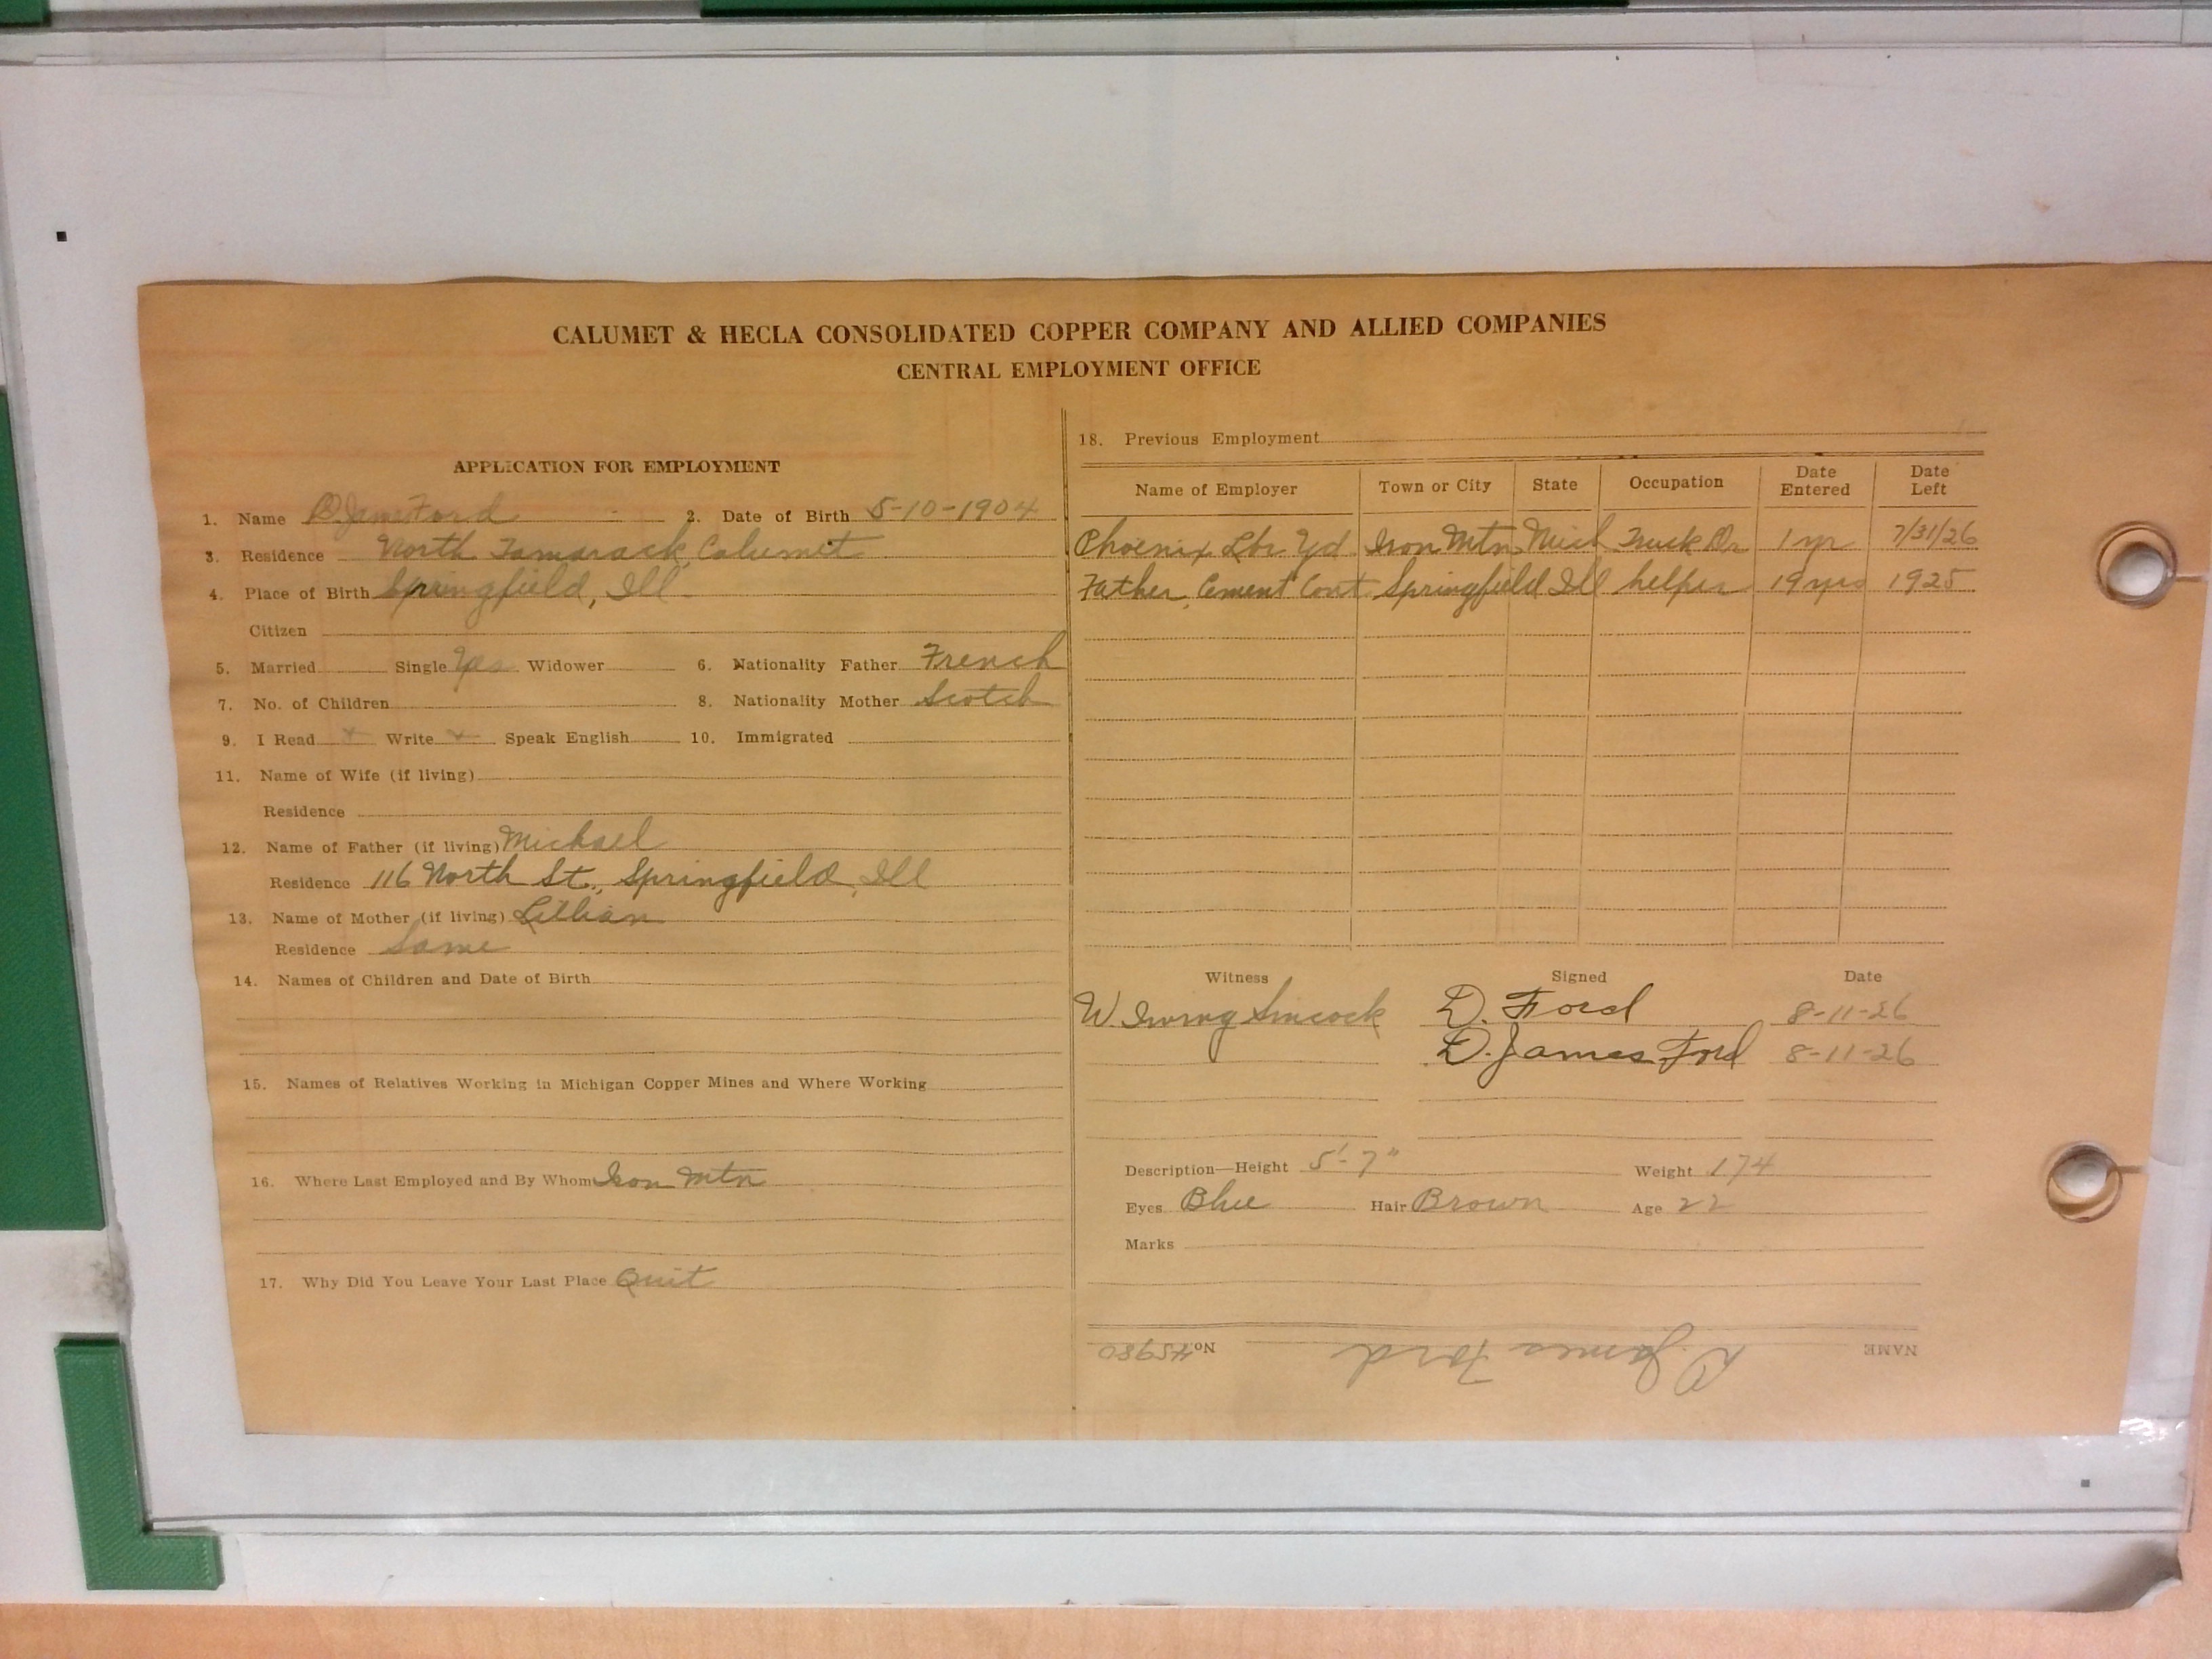 CALUMET & HECLA CONSOLIDATED COPPER COMPANY AND ALLIED COMPANIES
CENTRAL EMPLOYMENT OFFICE
APPLICATION FOR EMPLOYMENT
1. Name D. James Ford 2. Date of Birth 5-10-1904
3. Residence North Tamarack, Calumet
4. Place of Birth Springfield, Ill.
Citizen
5. Married Single Yes Widower 6. Nationality Father French
7. No. of Children 8. Nationality Mother Scotch
9. I Read Write Speak English 10. Immigrated
11. Name of Wife (if living)
Residence
12. Name of Father (if living) Michael
Residence 116 North St., Springfield, Ill
13. Name of Mother (if living) Lillian
Residence Same
14. Names of Children and Date of Birth
15. Names of Relatives Working in Michigan Copper Mines and Where Working
16. Where Last Employed and By Whom Iron Mtn
17. Why Did You Leave Your Last Place Quit
18. Previous Employment
Name of Employer Town or City State Occupation Date Entered Date Left
Phoenix Lbr Yd Iron Mtn Mich Truck Dr 1 yr 7/31/26
Father, Cement Cont Springfield Ill helper 19 yrs 1925
Witness Signed Date
W. Irving Sincock D. Ford 8-11-26
D. James Ford 8-11-26
Description—Height 5'-7" Weight 174
Eyes Blue Hair Brown Age 22
Marks
NAME D. James Ford No. 45980